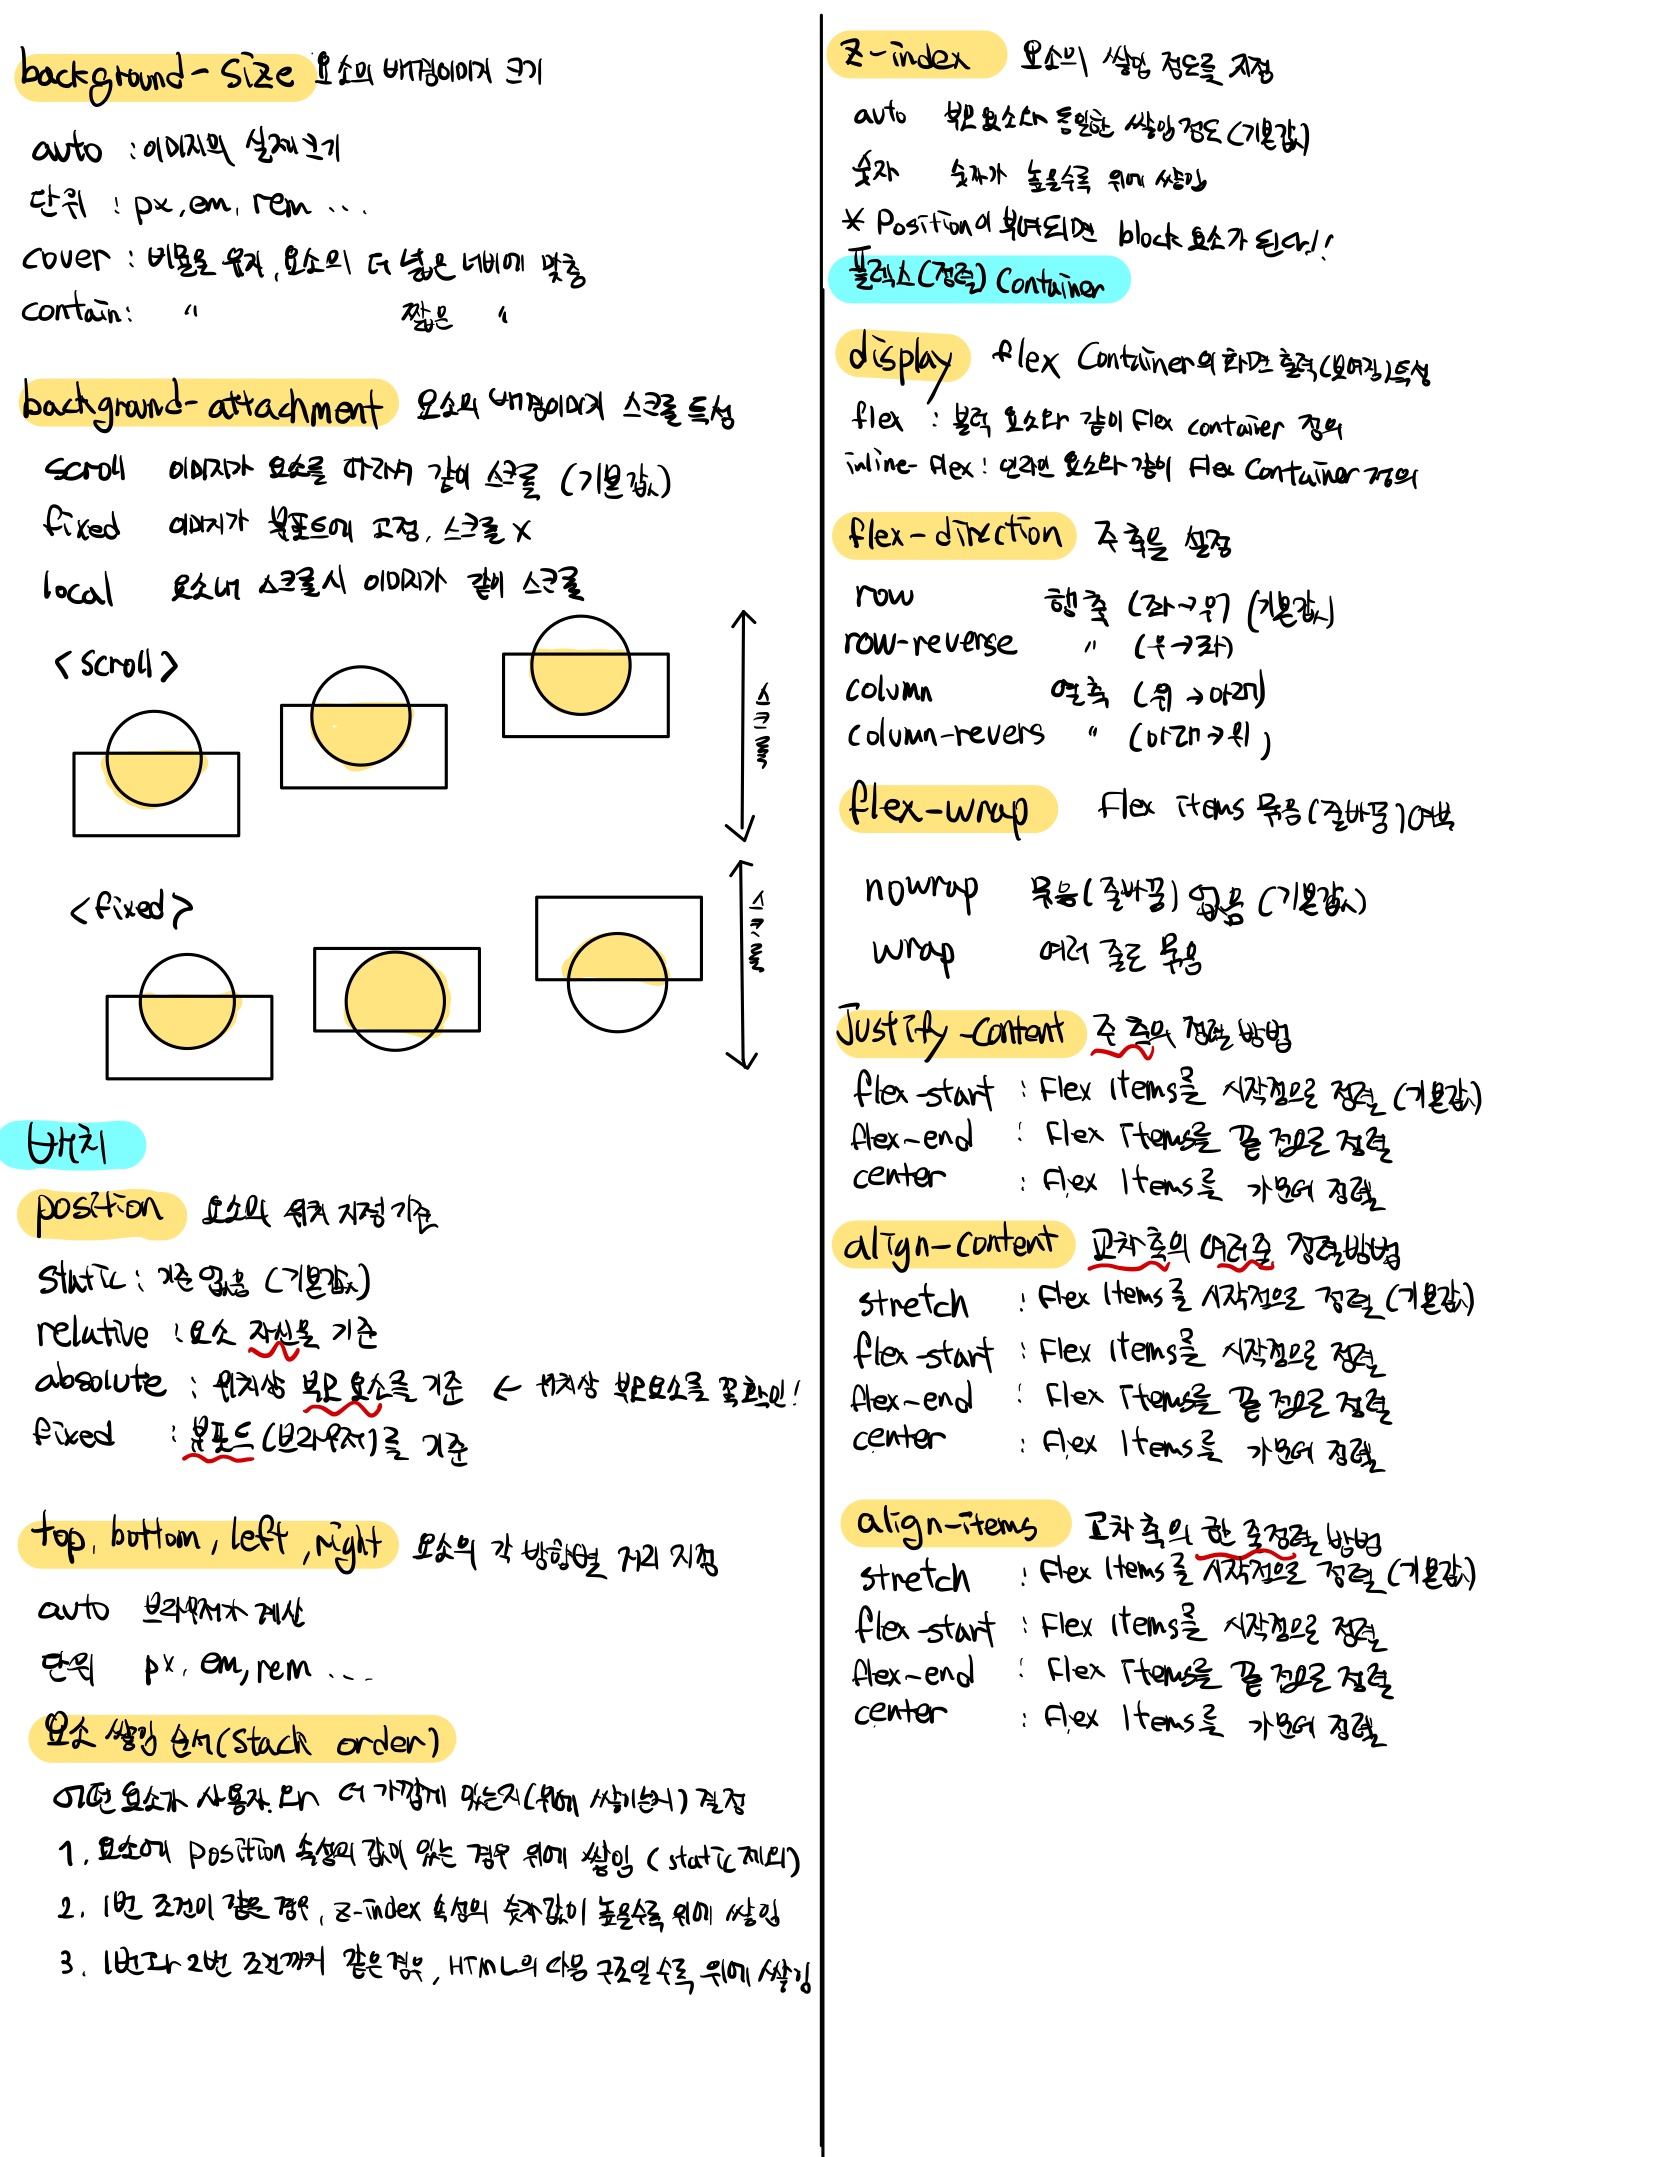 background-size 요소의 배경이미지 크기
auto : 이미지의 실제크기
단위 : px, em, rem ...
cover : 비율을 유지, 요소의 더 넓은 너비에 맞춤
contain: " 짧은 "
background-attachment 요소의 배경이미지 스크롤 특성
scroll 이미지가 요소를 따라서 같이 스크롤 (기본값)
fixed 이미지가 뷰포트에 고정, 스크롤 X
local 요소내 스크롤시 이미지가 같이 스크롤
<scroll>
스크롤
<fixed>
스크롤
배치
position 요소의 위치 지정 기준
static : 기준 없음 (기본값)
relative : 요소 자신을 기준
absolute : 위치상 부모 요소를 기준 ← 위치상 부모요소를 꼭 확인!
fixed : 뷰포트 (브라우저)를 기준
top, bottom, left, right 요소의 각 방향별 거리 지정
auto 브라우저가 계산
단위 px, em, rem ...
요소 쌓임 순서 (Stack order)
어떤 요소가 사용자와 더 가깝게 있는지 (위에 쌓이는지) 결정
1. 요소에 position 속성의 값이 있는 경우 위에 쌓임 (static 제외)
2. 1번 조건이 같은 경우, z-index 속성의 숫자값이 높을수록 위에 쌓임
3. 1번과 2번 조건까지 같은 경우, HTML의 다음 구조일 수록 위에 쌓임
z-index 요소의 쌓임 정도를 지정
auto 부모 요소와 동일한 쌓임 정도 (기본값)
숫자 숫자가 높을수록 위에 쌓임
* Position이 부여되면 block 요소가 된다!!
플렉스 (정렬) Container
display flex Container의 화면 출력 (보여짐) 특성
flex : 블럭 요소와 같이 Flex container 정의
inline-Flex : 인라인 요소와 같이 Flex Container 정의
flex-direction 주 축을 설정
row 행 축 (좌→우) (기본값)
row-reverse " (우→좌)
column 열 축 (위→아래)
column-revers " (아래→위)
flex-wrap Flex items 묶음 (줄바꿈) 여부
nowrap 묶음 (줄바꿈) 없음 (기본값)
wrap 여러 줄로 묶음
Justify-Content 주 축의 정렬 방법
flex-start : Flex Items를 시작점으로 정렬 (기본값)
flex-end : Flex Items를 끝 점으로 정렬
center : Flex Items를 가운데 정렬
align-content 교차 축의 여러 줄 정렬방법
stretch : Flex Items를 시작점으로 정렬 (기본값)
flex-start : Flex Items를 시작점으로 정렬
flex-end : Flex Items를 끝 점으로 정렬
center : Flex Items를 가운데 정렬
align-items 교차 축의 한 줄 정렬 방법
stretch : Flex Items를 시작점으로 정렬 (기본값)
flex-start : Flex Items를 시작점으로 정렬
flex-end : Flex Items를 끝 점으로 정렬
center : Flex Items를 가운데 정렬